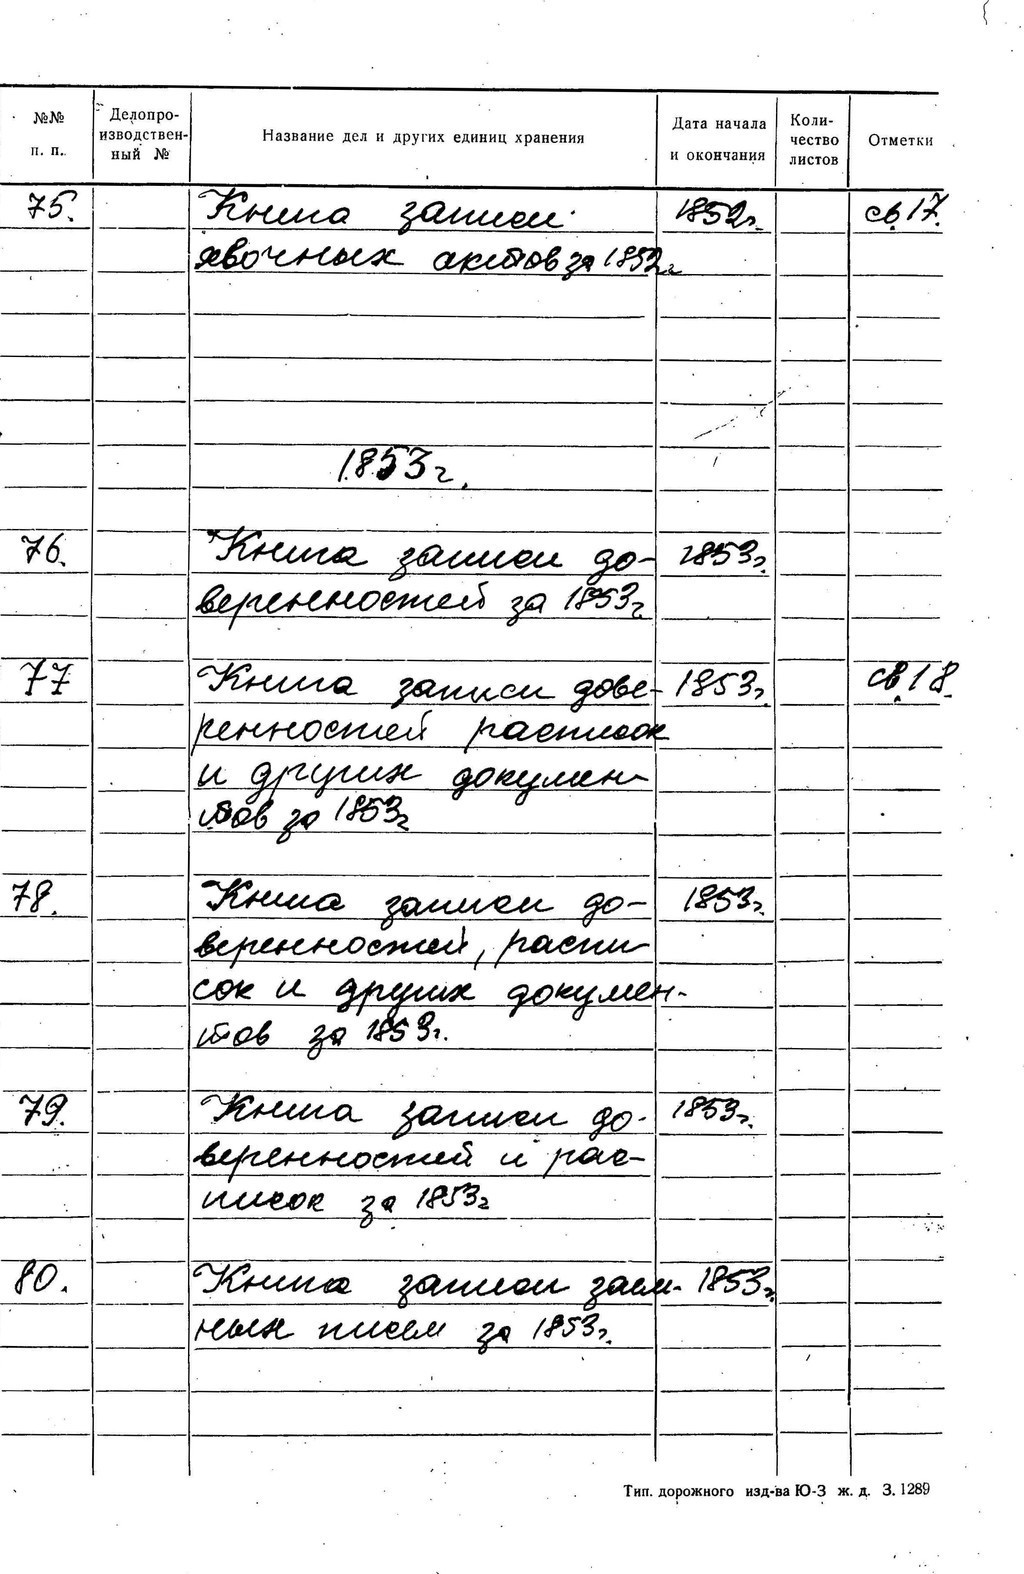 №№ п. п.
Делопро-
изводствен-
ный №
Название дел и других единиц хранения
Дата начала
и окончания
Коли-
чество
листов
Отметки
75. Книга записи 1852г. св.17.
явочных актов за 1852г
1853г.
76. Книга записи до- 1853г.
веренностей за 1853г
77 Книга записи дове- 1853г. св.18.
ренностей расписок
и других докумен-
тов за 1853г
78. Книга записи до- 1853г.
веренностей, распи
сок и других докумен-
тов за 1853г.
79. Книга записи до- 1853г.
веренностей и рас-
писок за 1853г
80. Книга записи заем- 1853г.
ных писем за 1853г.
Тип. дорожного изд-ва Ю-З ж. д. З. 1289